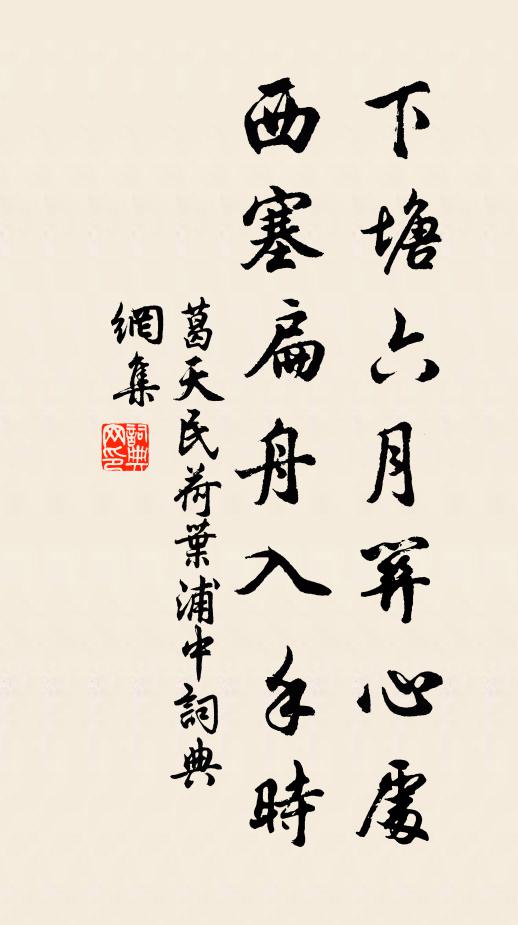 下塘六月開心處
西塞扁舟入手時
葛天民荷葉浦中詞典
網集
詞典
网印